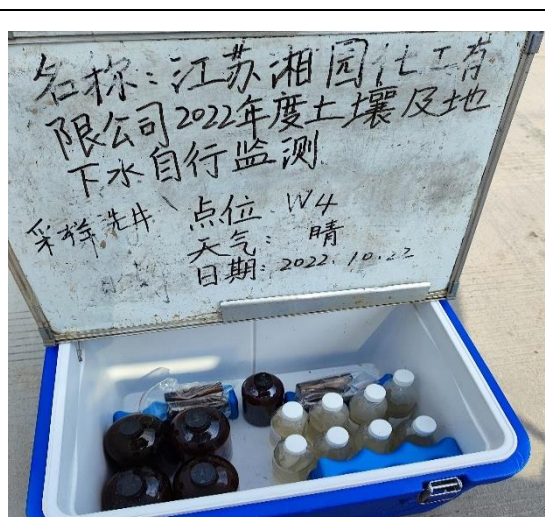 名称：江苏湘园化工有
限公司2022年度土壤及地
下水自行监测
采样洗井 点位 W4
天气：晴
日期：2022.10.22